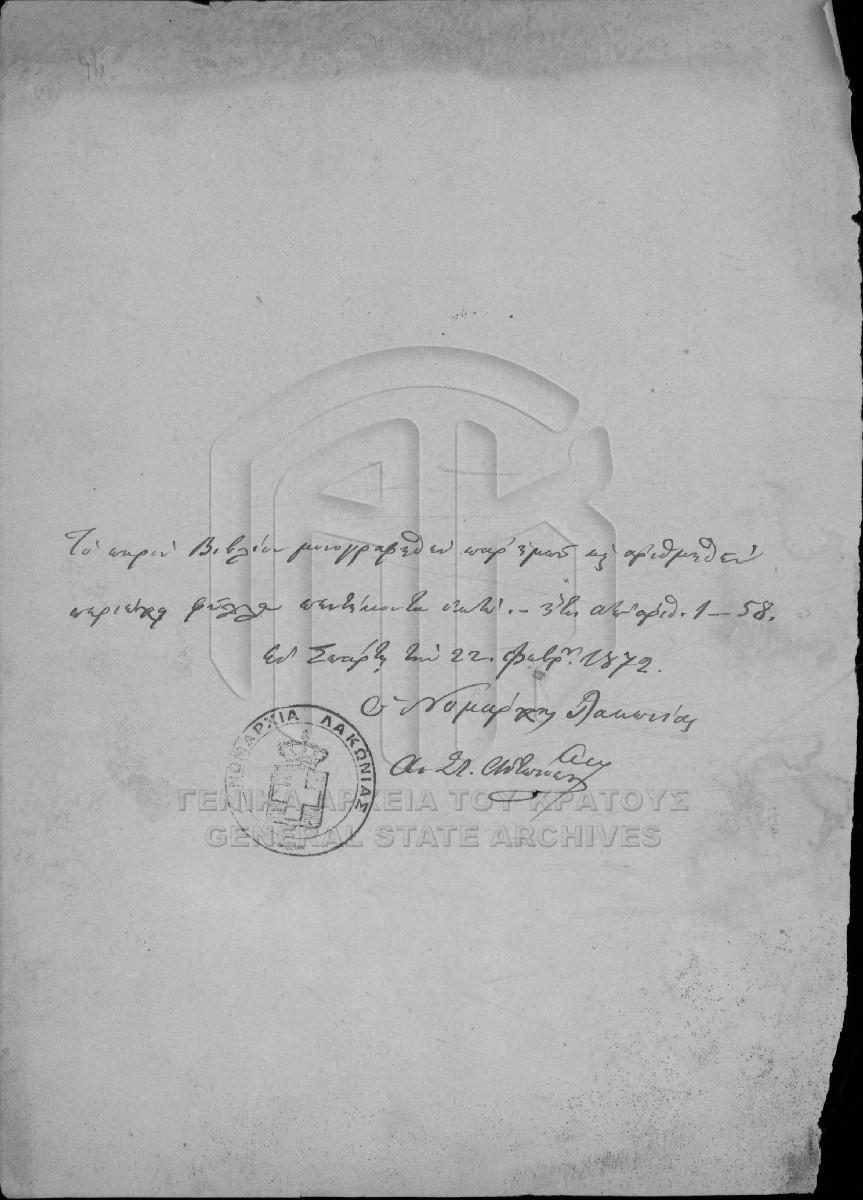 Τὸ παρὸν Βιβλίον μονογραφηθὲν παρ' ἐμοῦ καὶ ἀριθμηθὲν
περιέχει φύλλα πεντήκοντα ὀκτώ. – ἤτοι ἀπὸ ἀριθ. 1 – 58.
Ἐν Σπάρτῃ τὴν 22. Φεβρ. 1872.
Ὁ Νομάρχης Λακωνίας
ΝΟΜΑΡΧΙΑ ΛΑΚΩΝΙΑΣ
ΓΕΝΙΚΑ ΑΡΧΕΙΑ ΤΟΥ ΚΡΑΤΟΥΣ
GENERAL STATE ARCHIVES